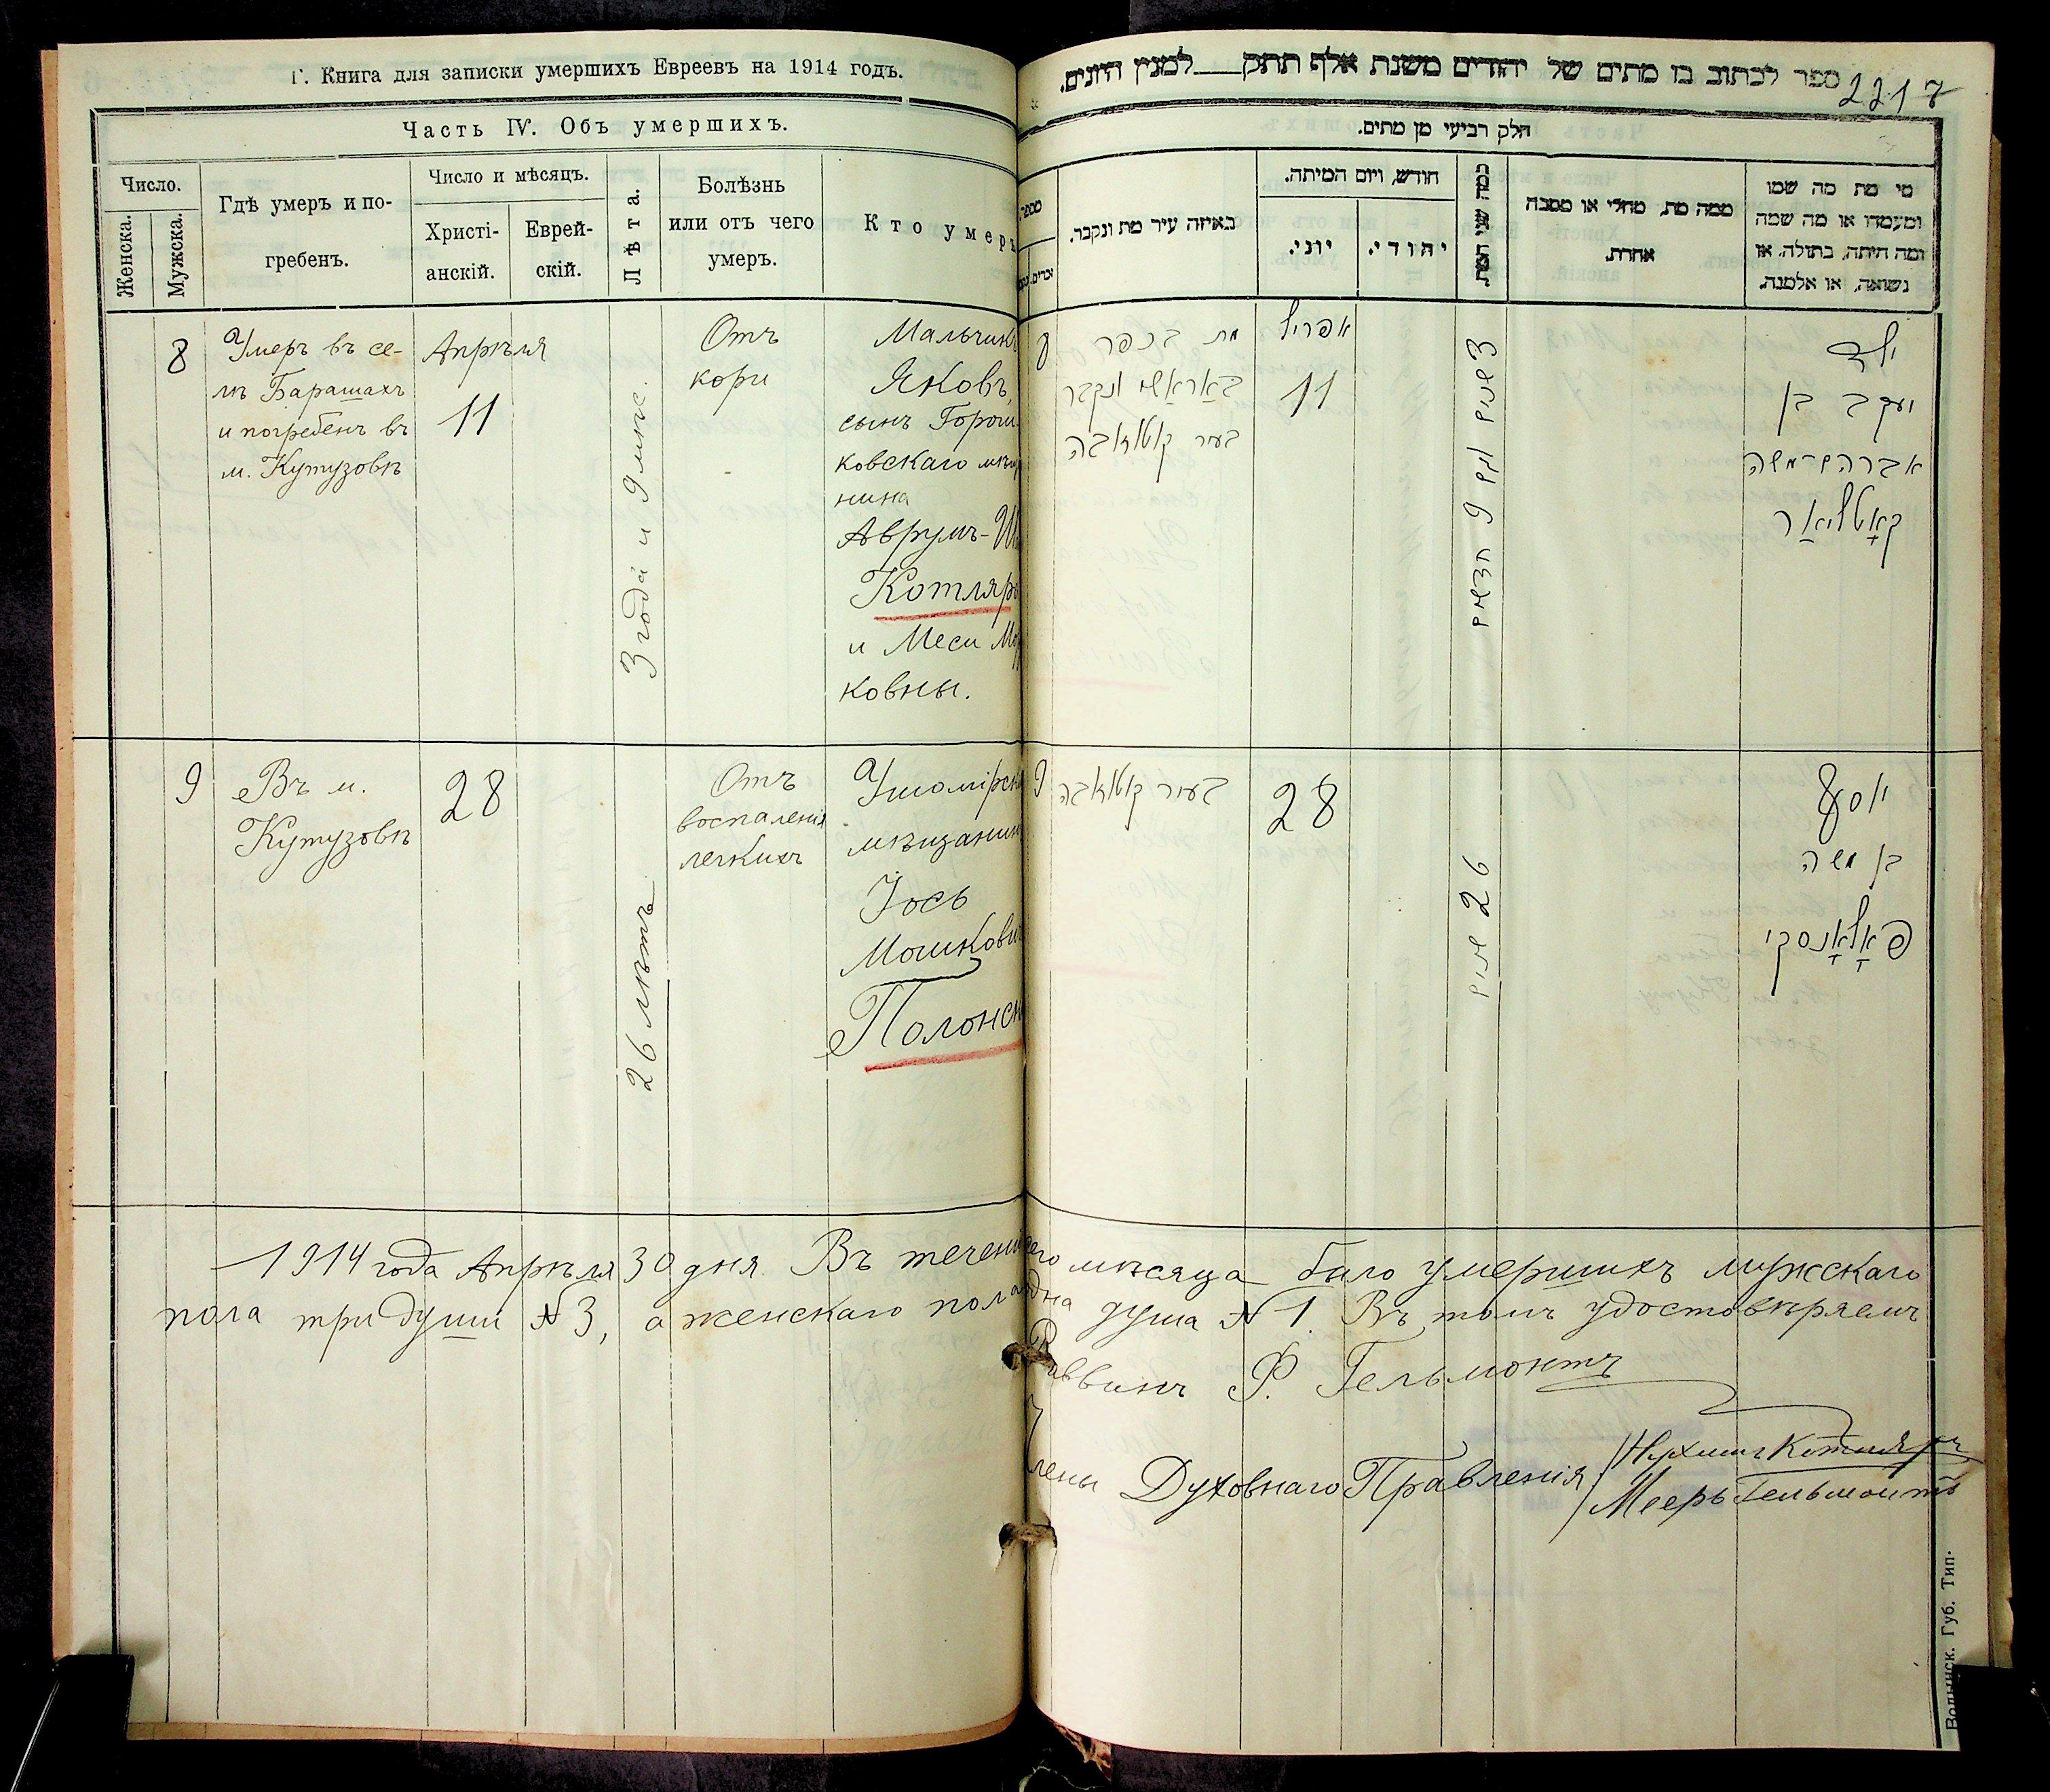 Г. Книга для записки умершихъ Евреевъ на 1914 годъ.
Часть IV. Объ умершихъ.
Число.
Женска.
Мужска.
Гдѣ умеръ и по-
гребенъ.
Число и мѣсяцъ.
Христі-
анскій.
Еврей-
скій.
Лѣта.
Болѣзнь
или отъ чего
умеръ.
Кто умеръ
8
Умеръ въ се-
лѣ Барашахъ
и погребенъ въ
м. Кутузовѣ
Апрѣля
11
3 года и 9 мѣс.
Отъ
кори
Мальчикъ
Яковъ,
сынъ Горош
ковскаго мѣщ
нина
Аврумъ-Ш
Котляръ
и Меси Мо
ковны.
9
Въ м.
Кутузовѣ
28
26 лѣтъ
Отъ
воспаленія
легкихъ
Ушомірскі
мѣщанин
Іось
Мошкови
Полонск
ספר לכתוב בו מתים של יהודים משנת אלף תתק למנין היונים.
2217
חלק רביעי מן מתים.
מספר
באיזה עיר מת ונקבר.
חודש, ויום המיתה.
יוני.
יהודי.
כמה שני המת.
ממה מת, מחלי או מסבה
אחרת.
מי מת מה שמו
ומעמדו או מה שמה
ומה היתה, בתולה, או
נשואה, או אלמנה.
8
מת בכפר
באַראַשי ונקבר
בעיר קוטוזאָבה
אפריל
11
3 שנים וגם 9 חדשים
ילד
יעקב בן
אברהם־משה
קאָטליאַר
9
בעיר קוטוזאבה
28
26 שנים
יוסף
בן משה
פּאָלאָנסקי
1914 года Апрѣля 30 дня. Въ теченіи сего мѣсяца было умершихъ мужскаго
пола три души № 3, а женскаго пола одна душа № 1. Въ томъ удостовѣряемъ
Раввинъ Ф. Гельмонтъ
Члены Духовнаго Правленія
Нухимъ Котляръ
Мееръ Гельмонтъ
Волынск. Губ. Тип.